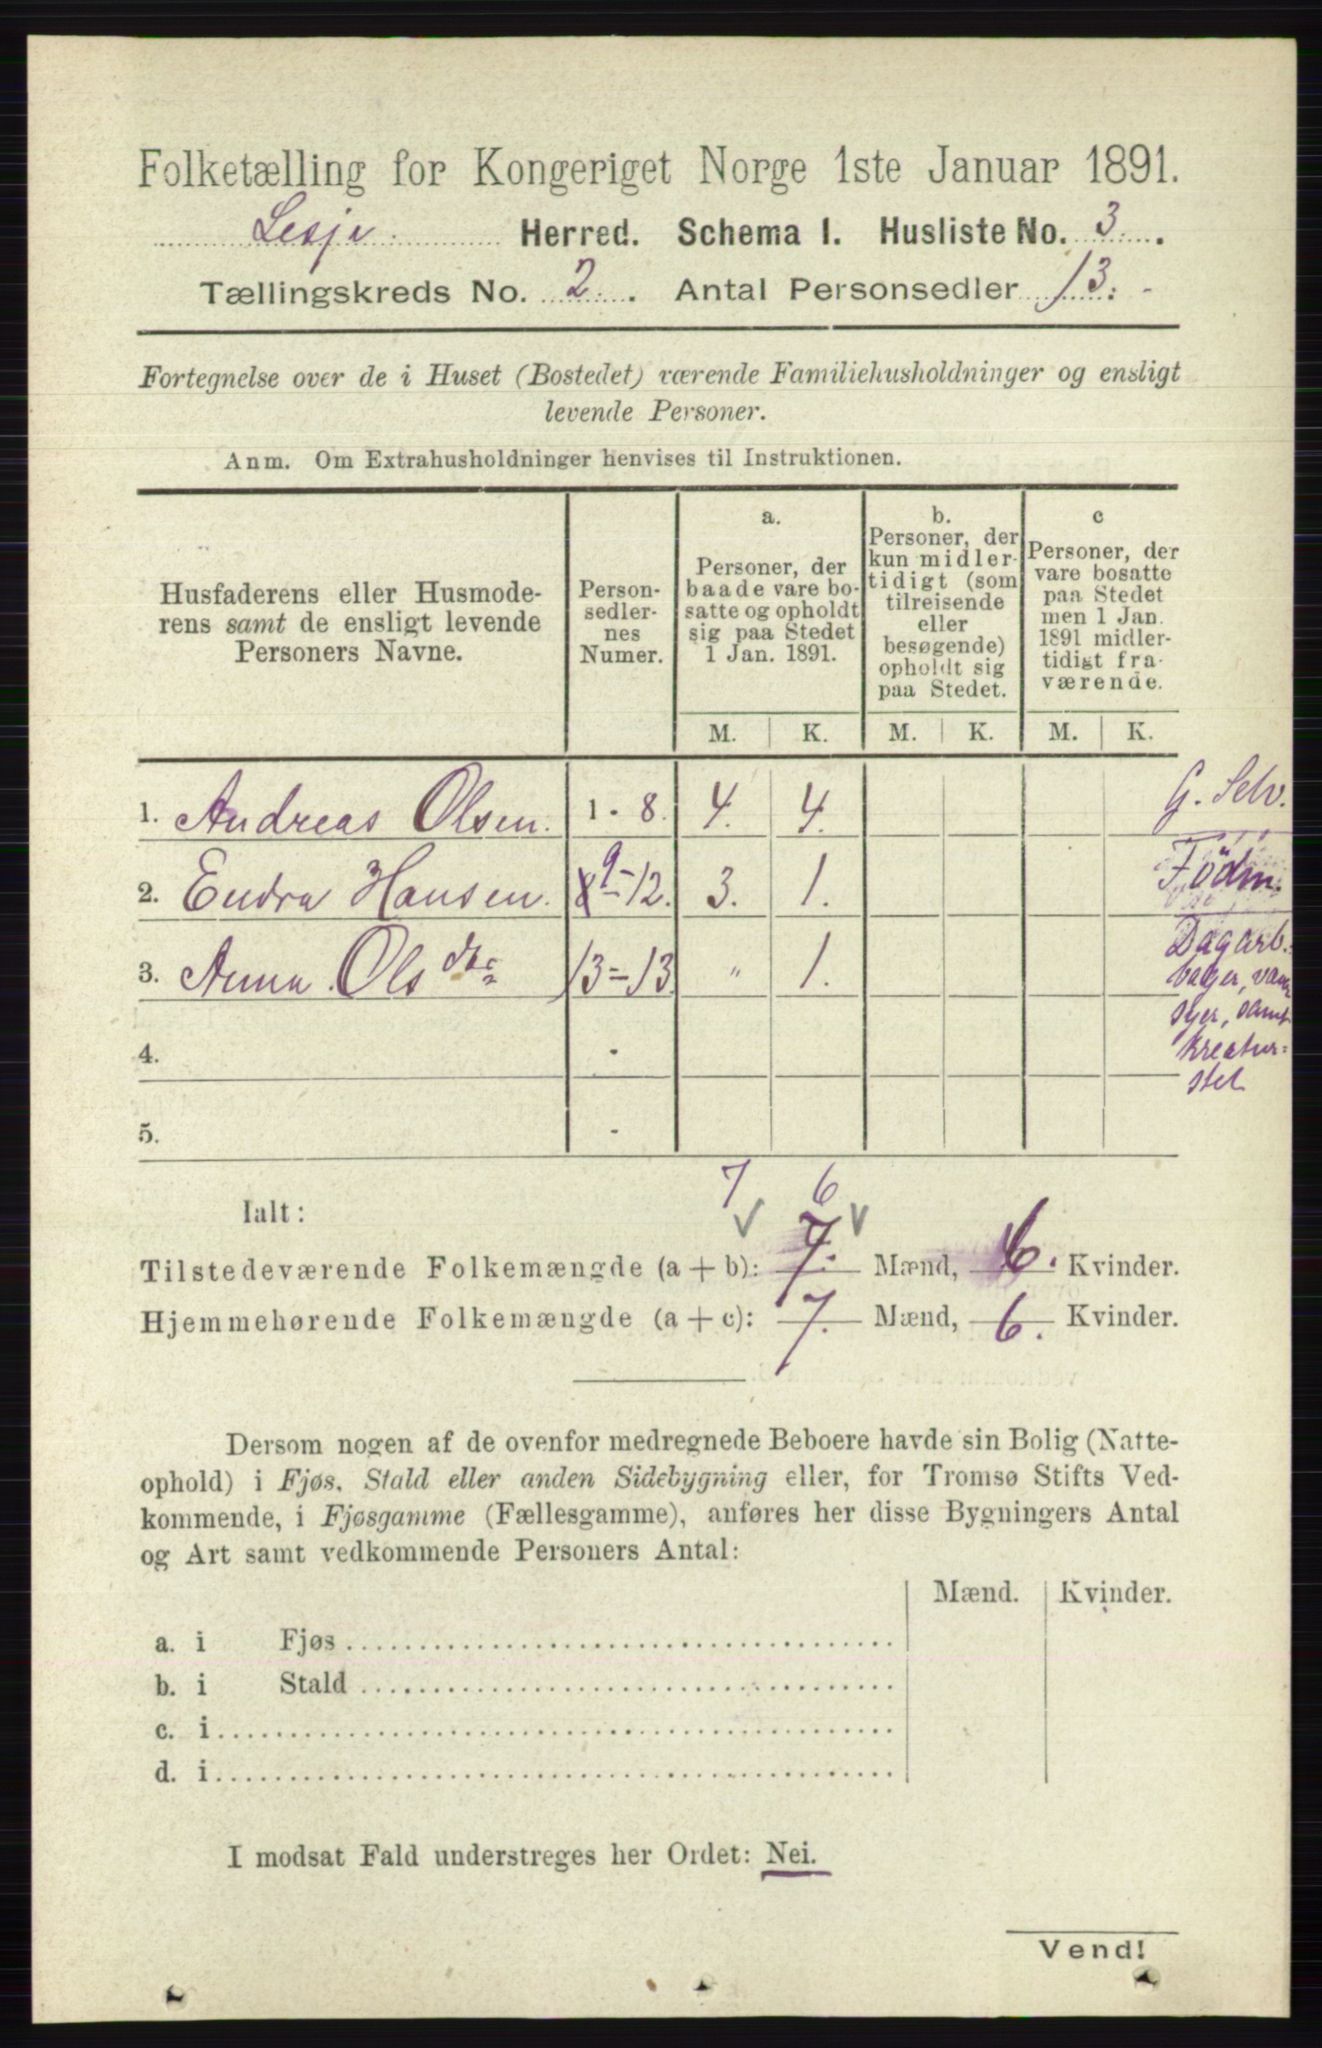 Folketælling for Kongeriget Norge 1ste Januar 1891.
Lesje Herred. Schema I. Husliste No. 3.
Tællingskreds No. 2. Antal Personsedler 13.
Fortegnelse over de i Huset (Bostedet) værende Familiehusholdninger og ensligt
levende Personer.
Anm. Om Extrahusholdninger henvises til Instruktionen.
Husfaderens eller Husmode-
rens samt de ensligt levende
Personers Navne.
Person-
sedler-
nes
Numer.
a.
Personer, der
baade vare bo-
satte og opholdt
sig paa Stedet
1 Jan. 1891.
b.
Personer, der
kun midler-
tidigt (som
tilreisende
eller
besøgende)
opholdt sig
paa Stedet.
c
Personer, der
vare bosatte
paa Stedet
men 1 Jan.
1891 midler-
tidigt fra-
værende.
M. K. M. K. M. K.
1. Andreas Olsen. 1 - 8. 4. 4. G. Selv.
2. Endra Hansen. 9-12. 3. 1. Födm.
3. Anna Olsdtr 13=13 „ 1. Dagarb.
syer, samt
kreatur=
stel
4. -
5. -
7 6
Ialt:
Tilstedeværende Folkemængde (a + b): 7. Mænd, 6. Kvinder.
Hjemmehørende Folkemængde (a + c): 7. Mænd, 6. Kvinder.
Dersom nogen af de ovenfor medregnede Beboere havde sin Bolig (Natte-
ophold) i Fjøs, Stald eller anden Sidebygning eller, for Tromsø Stifts Ved-
kommende, i Fjøsgamme (Fællesgamme), anføres her disse Bygningers Antal
og Art samt vedkommende Personers Antal:
Mænd. Kvinder.
a. i Fjøs
b. i Stald
c. i
d. i
I modsat Fald understreges her Ordet: Nei.
Vend!